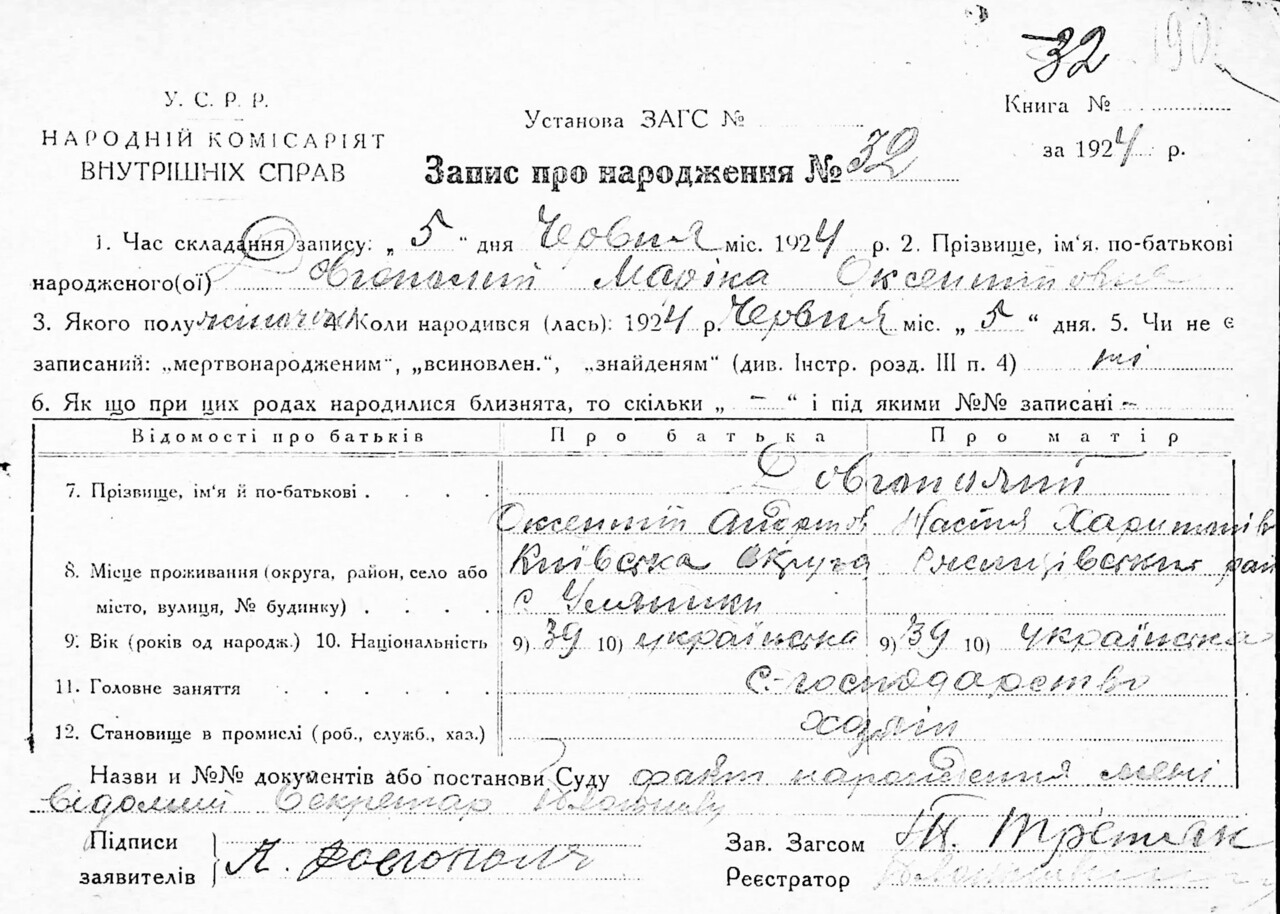 32
У. С. Р. Р.
НАРОДНІЙ КОМІСАРІЯТ
ВНУТРІШНІХ СПРАВ
Установа ЗАГС №
Книга №
за 1924 р.
Запис про народження № 32
1. Час складання запису: „ 5 “ дня Червня міс. 1924 р. 2. Прізвище, ім'я. по-батькові
народженого(ої) Довгополий Маріка Оксентіївна
3. Якого полу 4. Коли народився (лась): 1924 р. Червня міс. „ 5 “ дня. 5. Чи не є
записаний: „мертвонародженим“, „всиновлен.“, „знайденям“ (див. Інстр. розд. III п. 4) ні
6. Як що при цих родах народилися близнята, то скільки „ – “ і під якими №№ записані –
Відомості про батьків Про батька Про матір
7. Прізвище, ім'я й по-батькові . . . . Довгополий
Оксентій Настя Харитонів
8. Місце проживання (округа, район, село або Київська округа
місто, вулиця, № будинку) . . . . с
9. Вік (років од народж.) 10. Національність 9) 39 10) українська 9) 39 10) українська
11. Головне заняття . . . . . с.-господарство
12. Становище в промислі (роб., служб., хаз.) хазяїн
Назви и №№ документів або постанови Суду факт народження мені
відомий Секретар
Підписи
заявителів
А. Довгополя
Зав. Загсом Третяк
Реєстратор